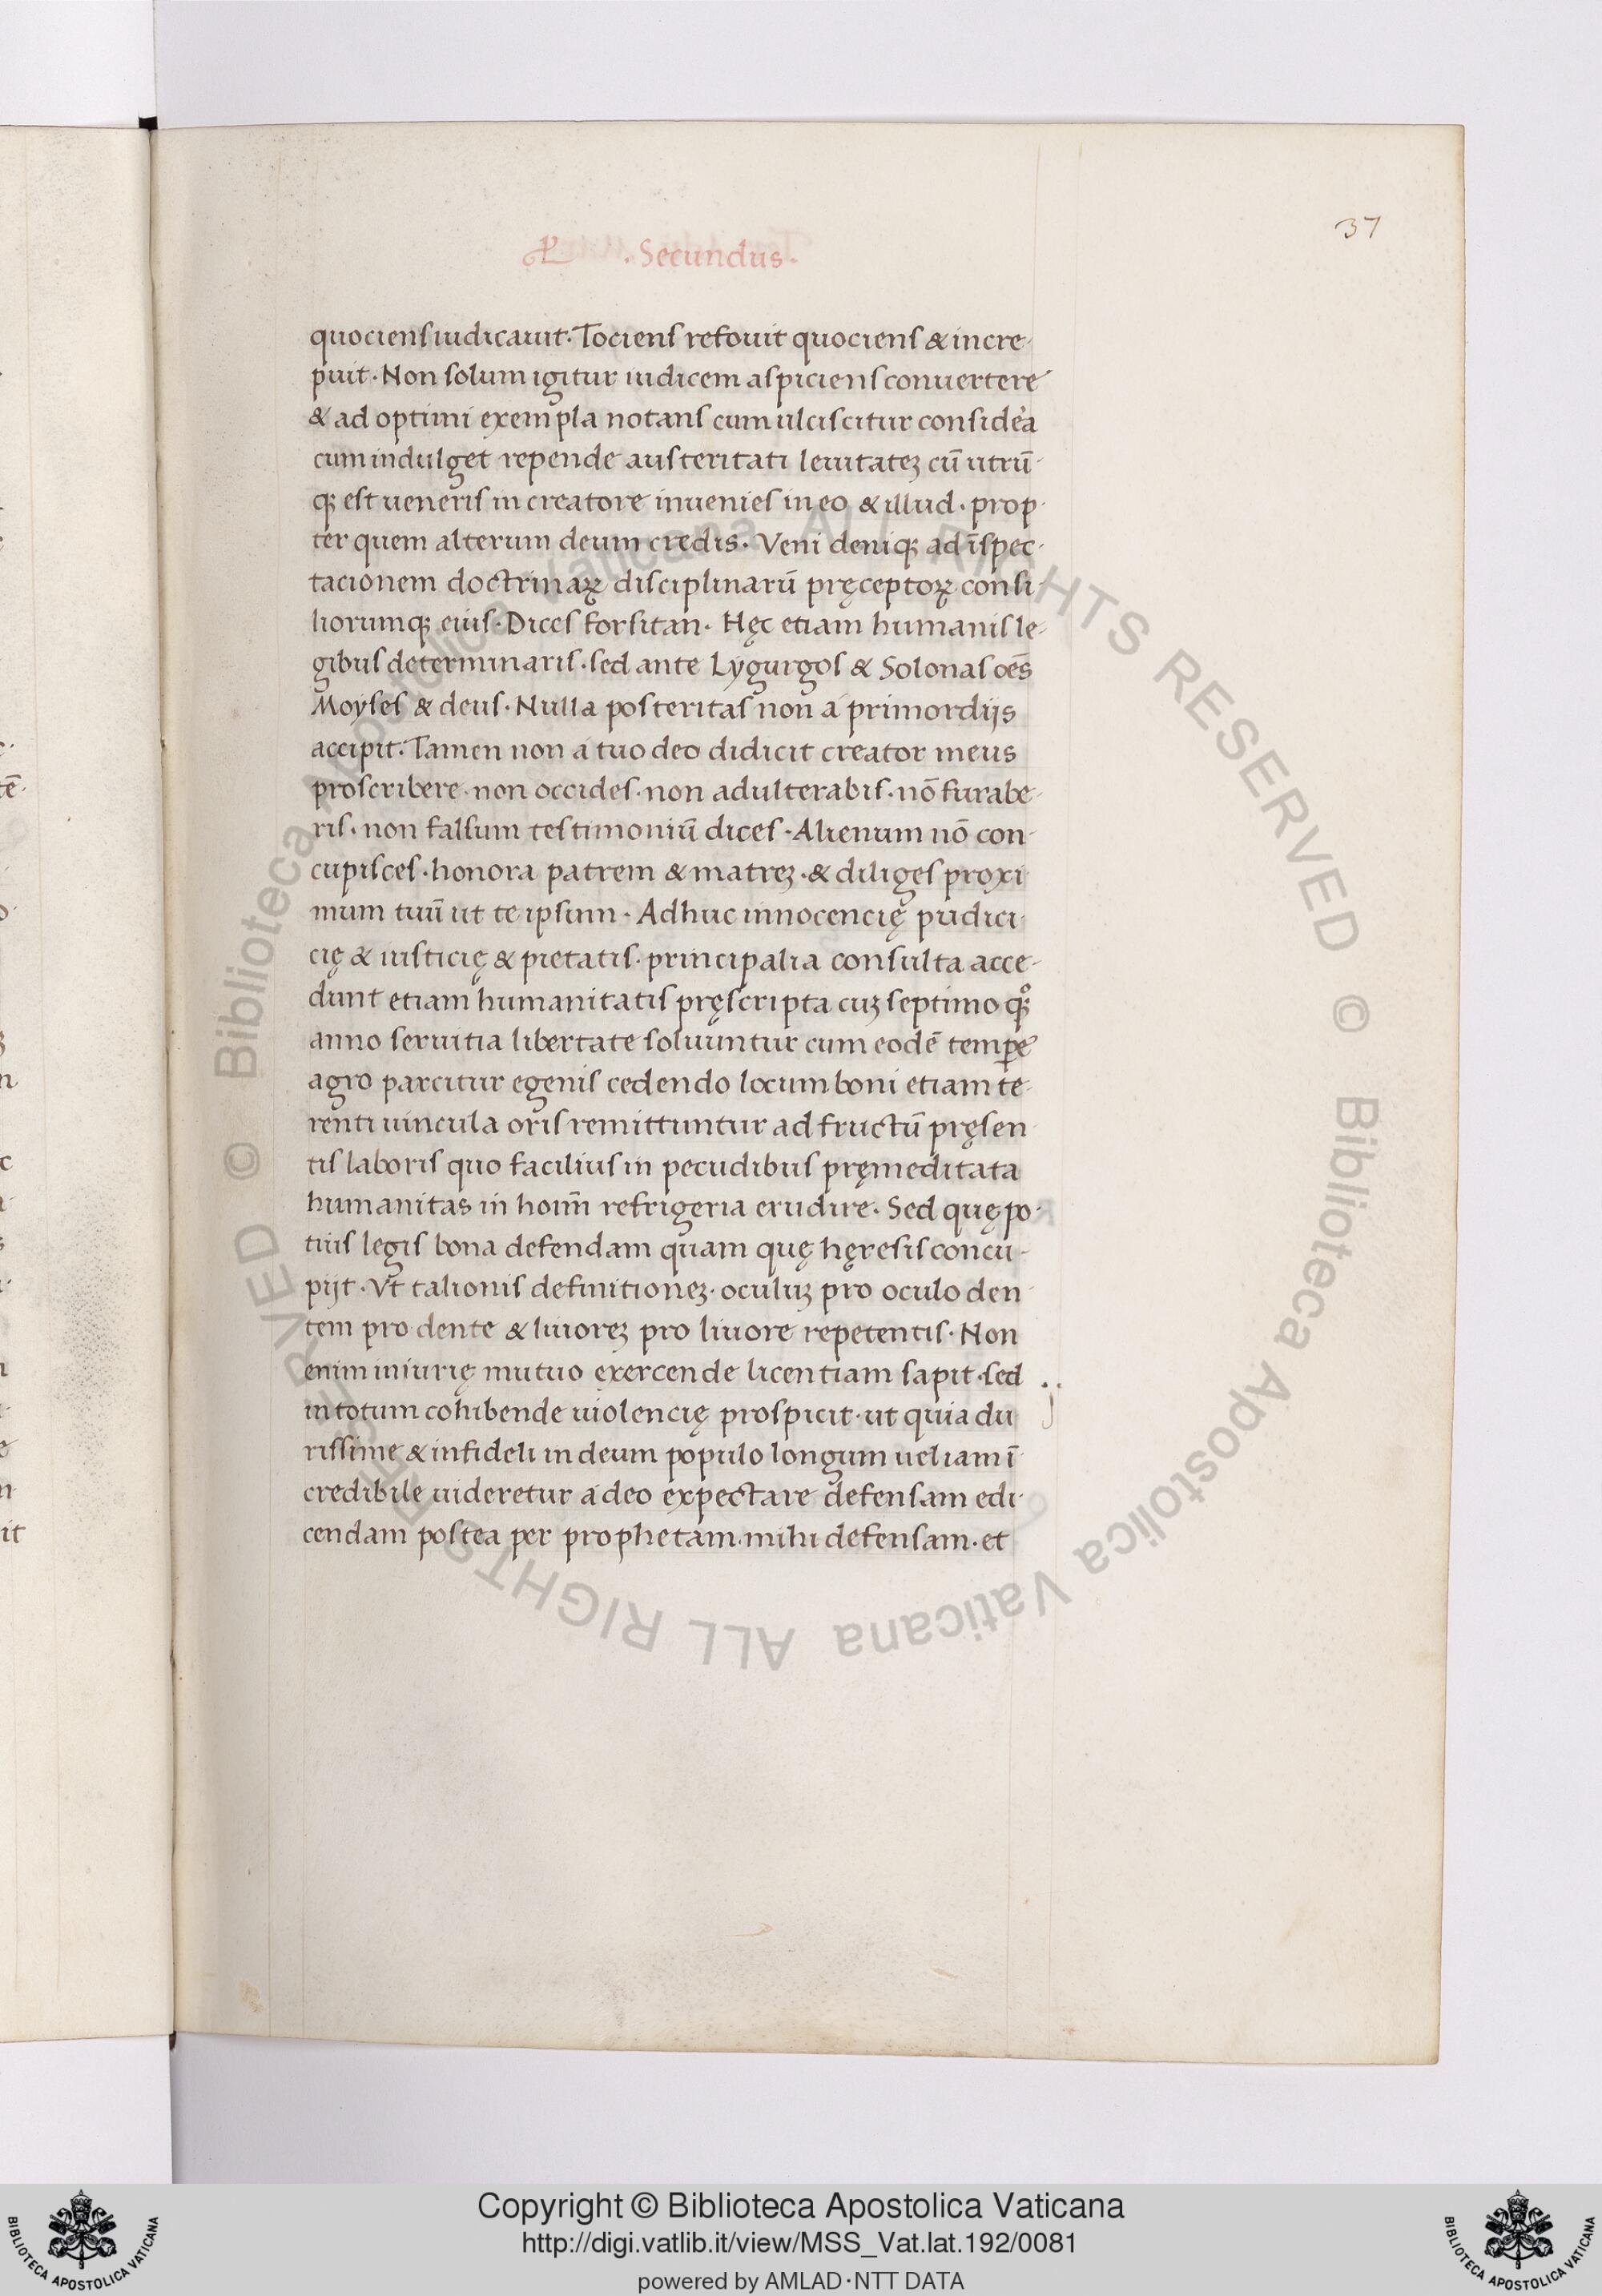 37
·Secundus·
quociens iudicauit· Tociens refouit quociens & incre-
puit· Non solum igitur iudicem aspiciens conuertere
& ad optimi exempla notans cum ulciscitur consid̾a
cum indulget repende austeritati leuitateꝫ cū utrū-
qꝫ est ueneris in creatore inuenies in eo & illud· prop-
ter quem alterum deum credis· Veni deniqꝫ ad īspec-
tacionem doctrinaꝝ disciplinarū pręceptoꝝ consi-
liorumqꝫ eius· Dices forsitan· Hęc etiam humanis le-
gibus determinaris· sed ante Lygurgos & Solonas oēs
Moyses & deus· Nulla posteritas non a primordijs
accipit· Tamen non a tuo deo didicit creator meus
proscribere· non occides· non adulterabis· nō furabe-
ris· non falsum testimoniū dices· Alienum nō con-
cupisces· honora patrem & matreꝫ· & diliges proxi-
mum tuū ut te ipsum· Adhuc innocencię pudici-
cię & iusticię & pietatis· principalia consulta acce-
dunt etiam humanitatis pręscripta cuꝫ septimo qꝫͦ
anno seruitia libertate soluuntur cum eodē tempe
agro parcitur egenis cedendo locum boni etiam te-
renti uincula oris remittuntur ad fructū pręsen-
tis laboris quo facilius in pecudibus pręmeditata
humanitas in hoim̄ refrigeria erudire· Sed quę po-
tius legis bona defendam quam quę hęresis concu-
pijt· Vt talionis definitioneꝫ· oculuꝫ pro oculo den-
tem pro dente & liuoreꝫ pro liuore repetentis· Non
enim iniurię mutuo exercende licentiam sapit· sed
in totum cohibende uiolencię prospicit· ut quia du
rissime & infideli in deum populo longum uel iam ī
credibile uideretur a deo expectare defensam edi-
cendam postea per prophetam· mihi defensam· et
© Biblioteca Apostolica Vaticana ALL RIGHTS RESERVED © Biblioteca Apostolica Vaticana ALL RIGHTS RESERVED
Copyright © Biblioteca Apostolica Vaticana
http://digi.vatlib.it/view/MSS_Vat.lat.192/0081
powered by AMLAD·NTT DATA
BIBLIOTECA APOSTOLICA VATICANA
BIBLIOTECA APOSTOLICA VATICANA